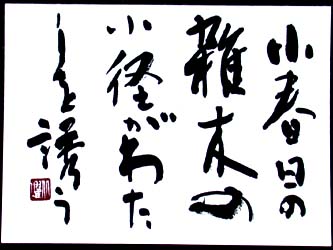 小春日の
雑木の
小径がわた
しを誘う